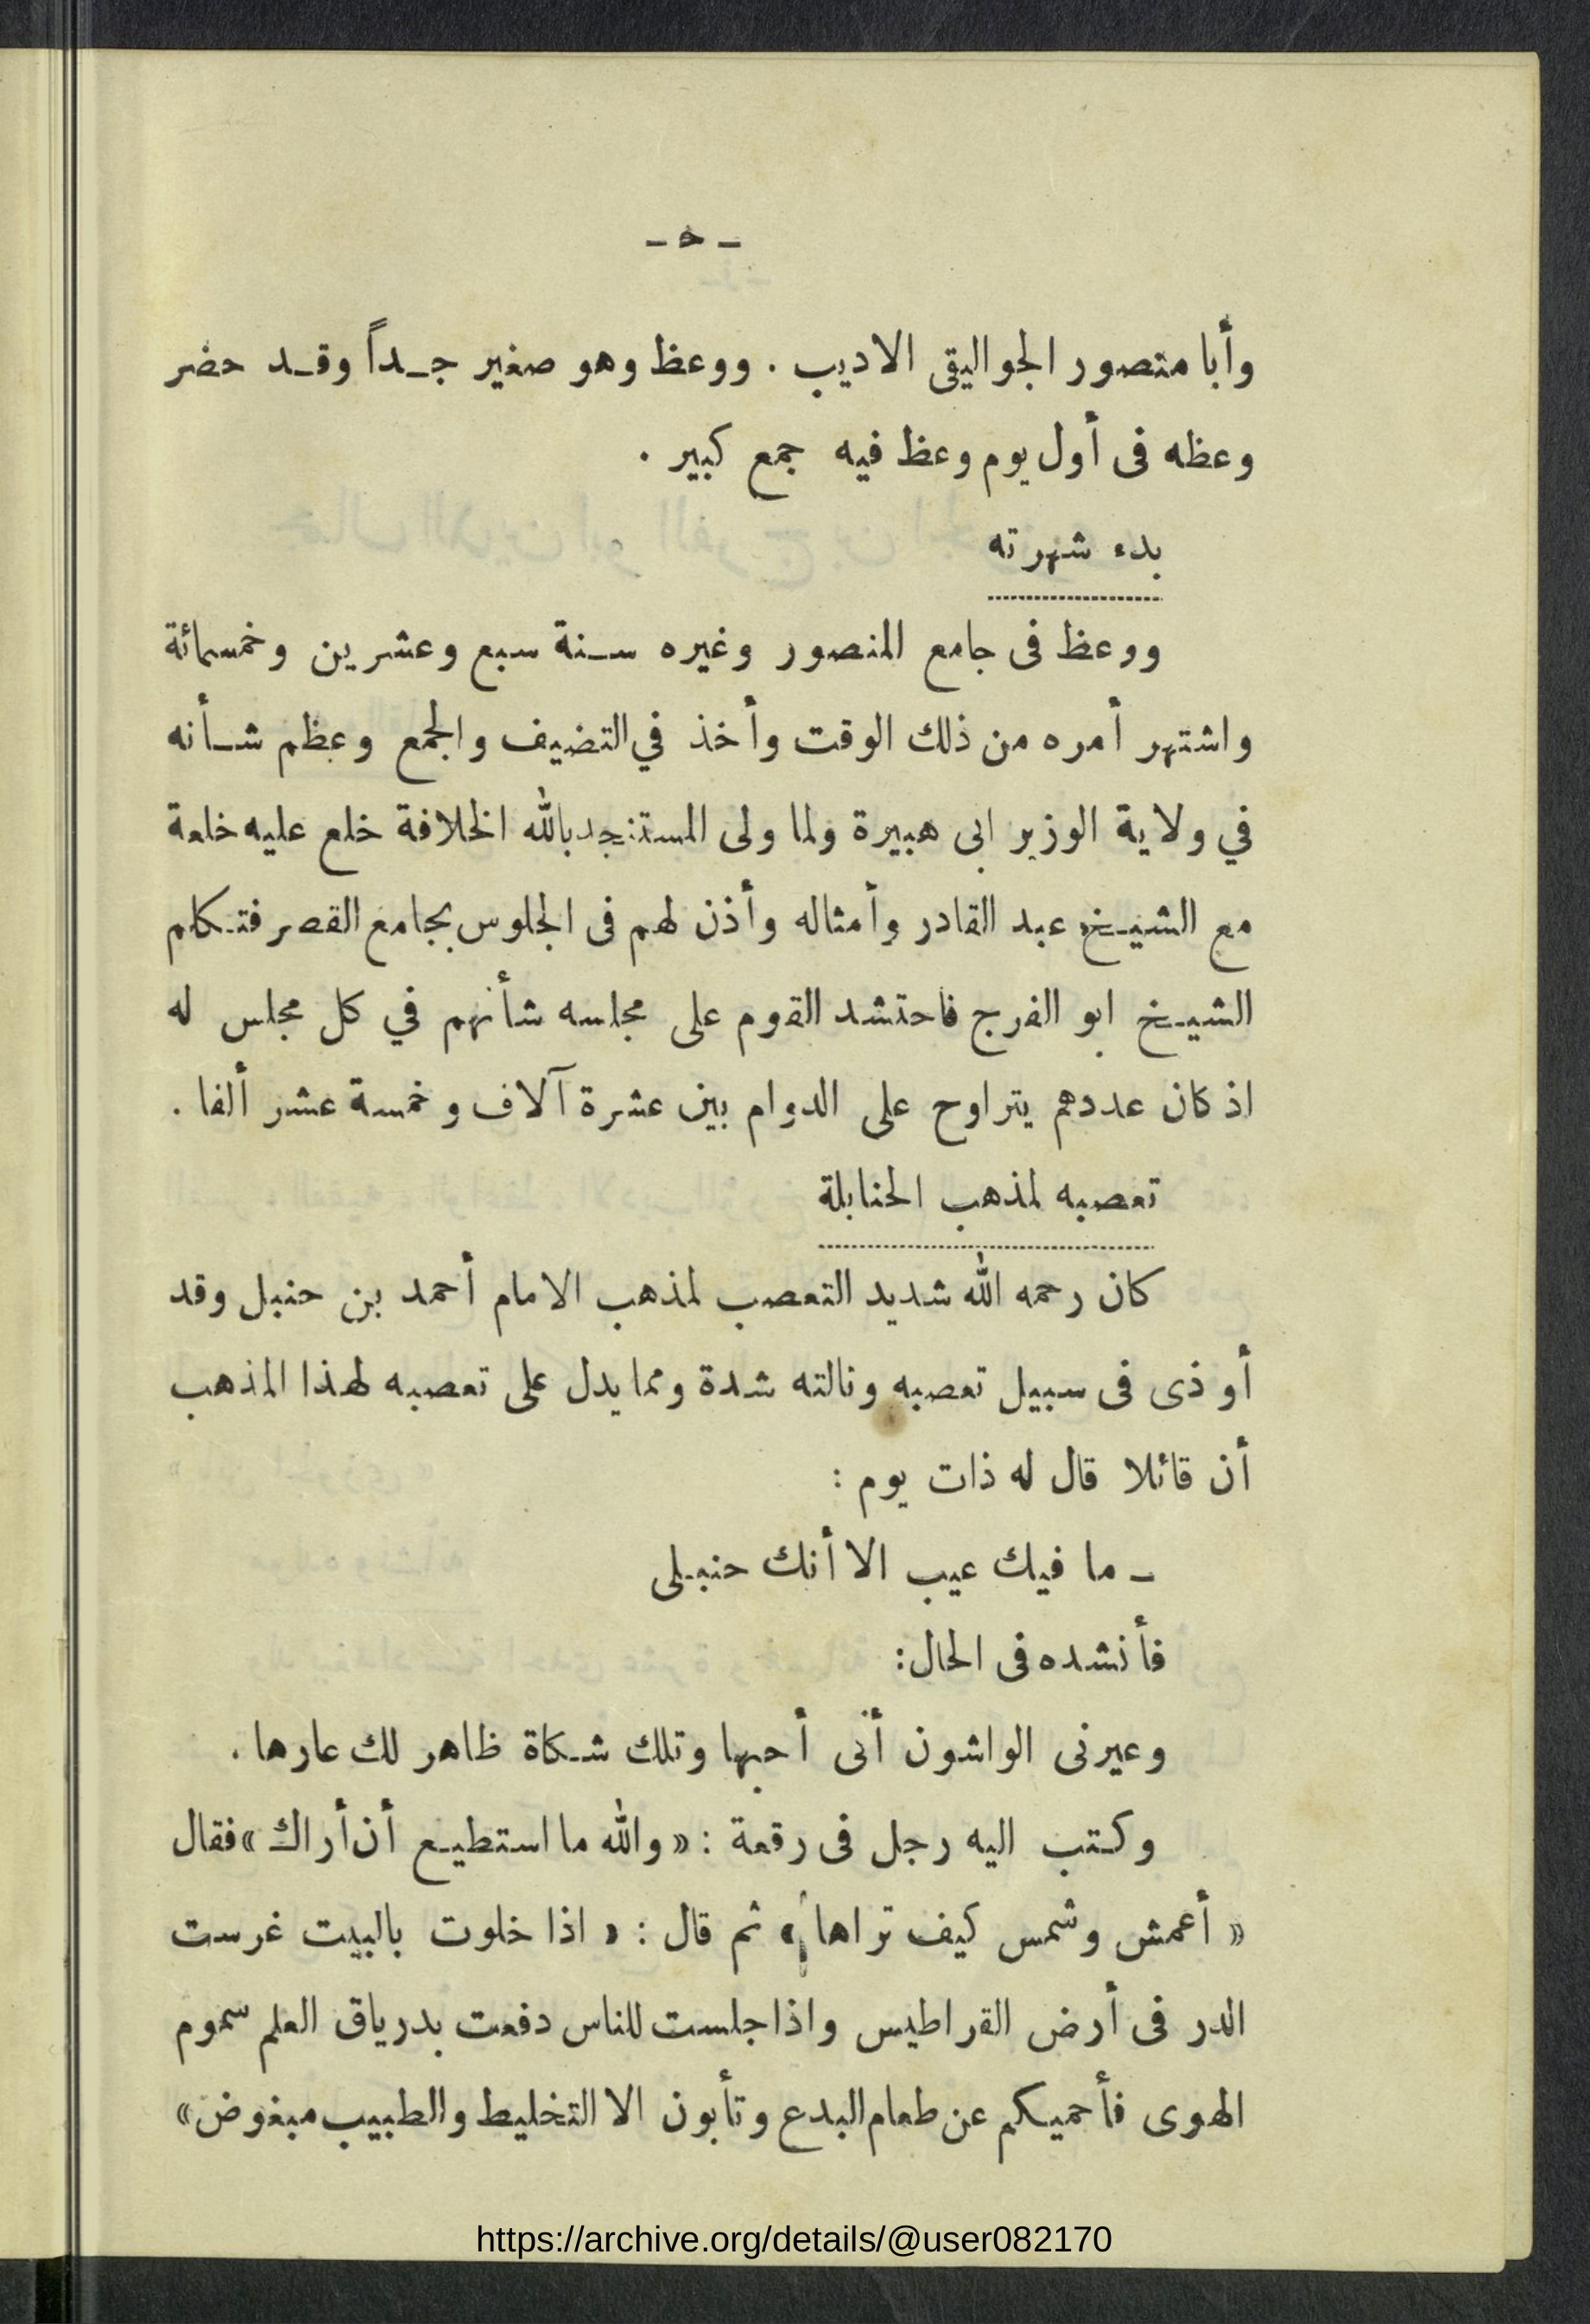 - ٥ -
وأبا منصور الجواليقى الاديب . ووعظ وهو صغير جداً وقد حضر
وعظه فى أول يوم وعظ فيه جمع كبير .
بدء شهرته
ووعظ فى جامع المنصور وغيره سنة سبع وعشرين وخمسمائة
واشتهر أمره من ذلك الوقت وأخذ في التضيف والجمع وعظم شأنه
في ولاية الوزير ابى هبيرة ولما ولى المستنجد بالله الخلافة خلع عليه خلعة
مع الشيخ عبد القادر وأمثاله وأذن لهم فى الجلوس بجامع القصر فتكلم
الشيخ ابو الفرج فاحتشد القوم على مجلسه شأنهم في كل مجلس له
اذ كان عددهم يتراوح على الدوام بين عشرة آلاف وخمسة عشر ألفا .
تعصبه لمذهب الحنابلة
كان رحمه الله شديد التعصب لمذهب الامام أحمد بن حنبل وقد
أوذى فى سبيل تعصبه ونالته شدة ومما يدل على تعصبه لهذا المذهب
أن قائلا قال له ذات يوم :
- ما فيك عيب الا أنك حنبلى
فأنشده فى الحال :
وعيرنى الواشون أنى أحبها وتلك شكاة ظاهر لك عارها .
وكتب اليه رجل فى رقعة : « والله ما استطيع أن أراك » فقال
« أعمش وشمس كيف تراها » ثم قال : « اذا خلوت بالبيت غرست
الدر فى أرض القراطيس واذا جلست للناس دفعت بدرياق العلم سموم
الهوى فأحميكم عن طعام البدع وتأبون الا التخليط والطبيب مبغوض »
https://archive.org/details/@user082170